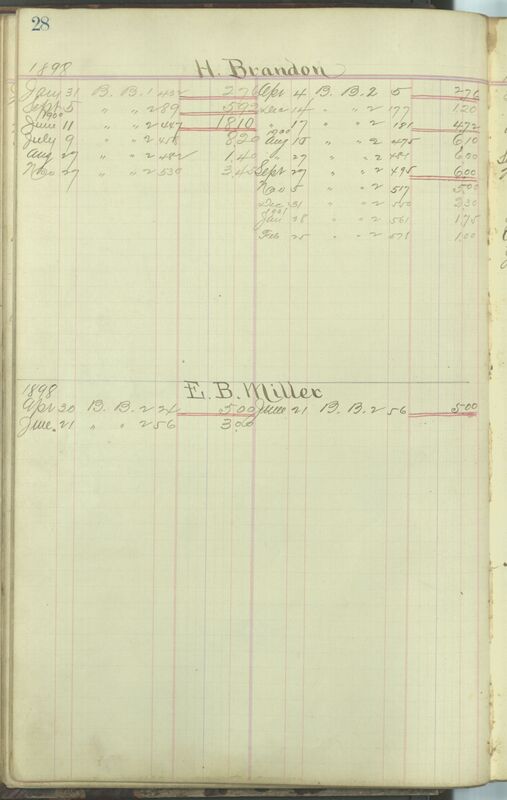 28
1898 H. Brandon
Jany 31 B. B. 1 432 276 Apr 4 B. B. 2 5 276
Sept 5 " " 2 89 592 Dec 14 " " 2 177 120
1900
June 11 " " 2 447 1810 " 17 " " 2 181 472
1900
July 9 " " 2 458 820 Aug 15 " " 2 475 610
Aug 27 " " 2 482 140 " 27 " " 2 481 600
Nov 27 " " 2 530 345 Sept 27 " " 2 495 600
Nov 5 " " 2 517 500
Dec 31 " " 2 550 330
1901
Jan 28 " " 2 561 175
Feb 25 " " 2 100
1898 E. B. Miller
Apr 30 B. B. 2 24 500 June 21 B. B. 2 56 500
June. 21 " " 2 56 300